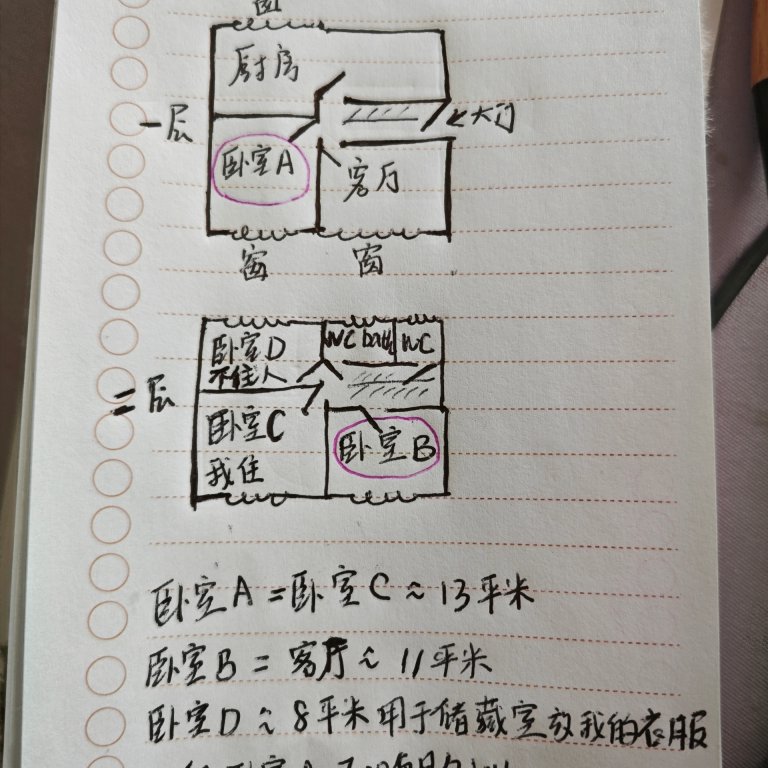 厨房
一层
大门
卧室A
客厅
窗
窗
卧室D
不住人
WC bath
WC
二层
卧室C
我住
卧室B
卧室A=卧室C≈13平米
卧室B=客厅≈11平米
卧室D≈8平米用于储藏室放我的衣服